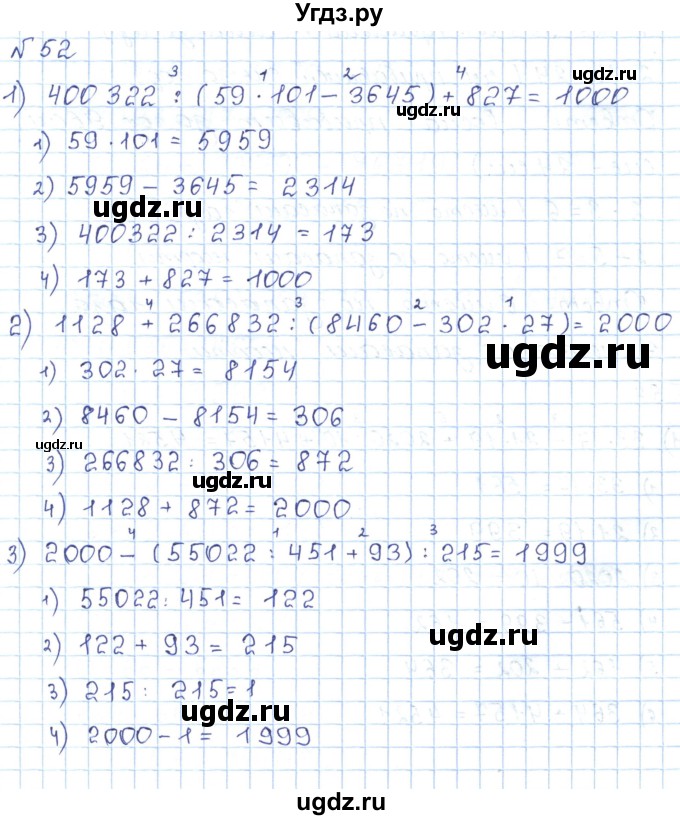 Угдз.ру
№ 52
3 1 2 4
1) 400 322 : (59 · 101 - 3645) + 827 = 1000
ugdz.ru
ugdz.ru
1) 59 · 101 = 5959
2) 5959 - 3645 = 2314
ugdz.ru
3) 400322 : 2314 = 173
4) 173 + 827 = 1000
4 3 2 1
2) 1128 + 266832 : (8460 - 302 · 27) = 2000
ugdz.ru
1) 302 · 27 = 8154
2) 8460 - 8154 = 306
ugdz.ru
3) 266832 : 306 = 872
ugdz.ru
4) 1128 + 872 = 2000
4 1 2 3
3) 2000 - (55022 : 451 + 93) : 215 = 1999
1) 55022 : 451 = 122
ugdz.ru
2) 122 + 93 = 215
3) 215 : 215 = 1
ugdz.ru
4) 2000 - 1 = 1999
ugdz.ru